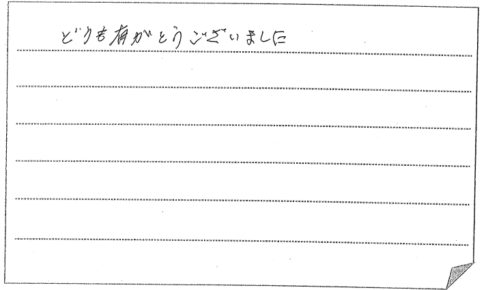 どうも有がとうございました